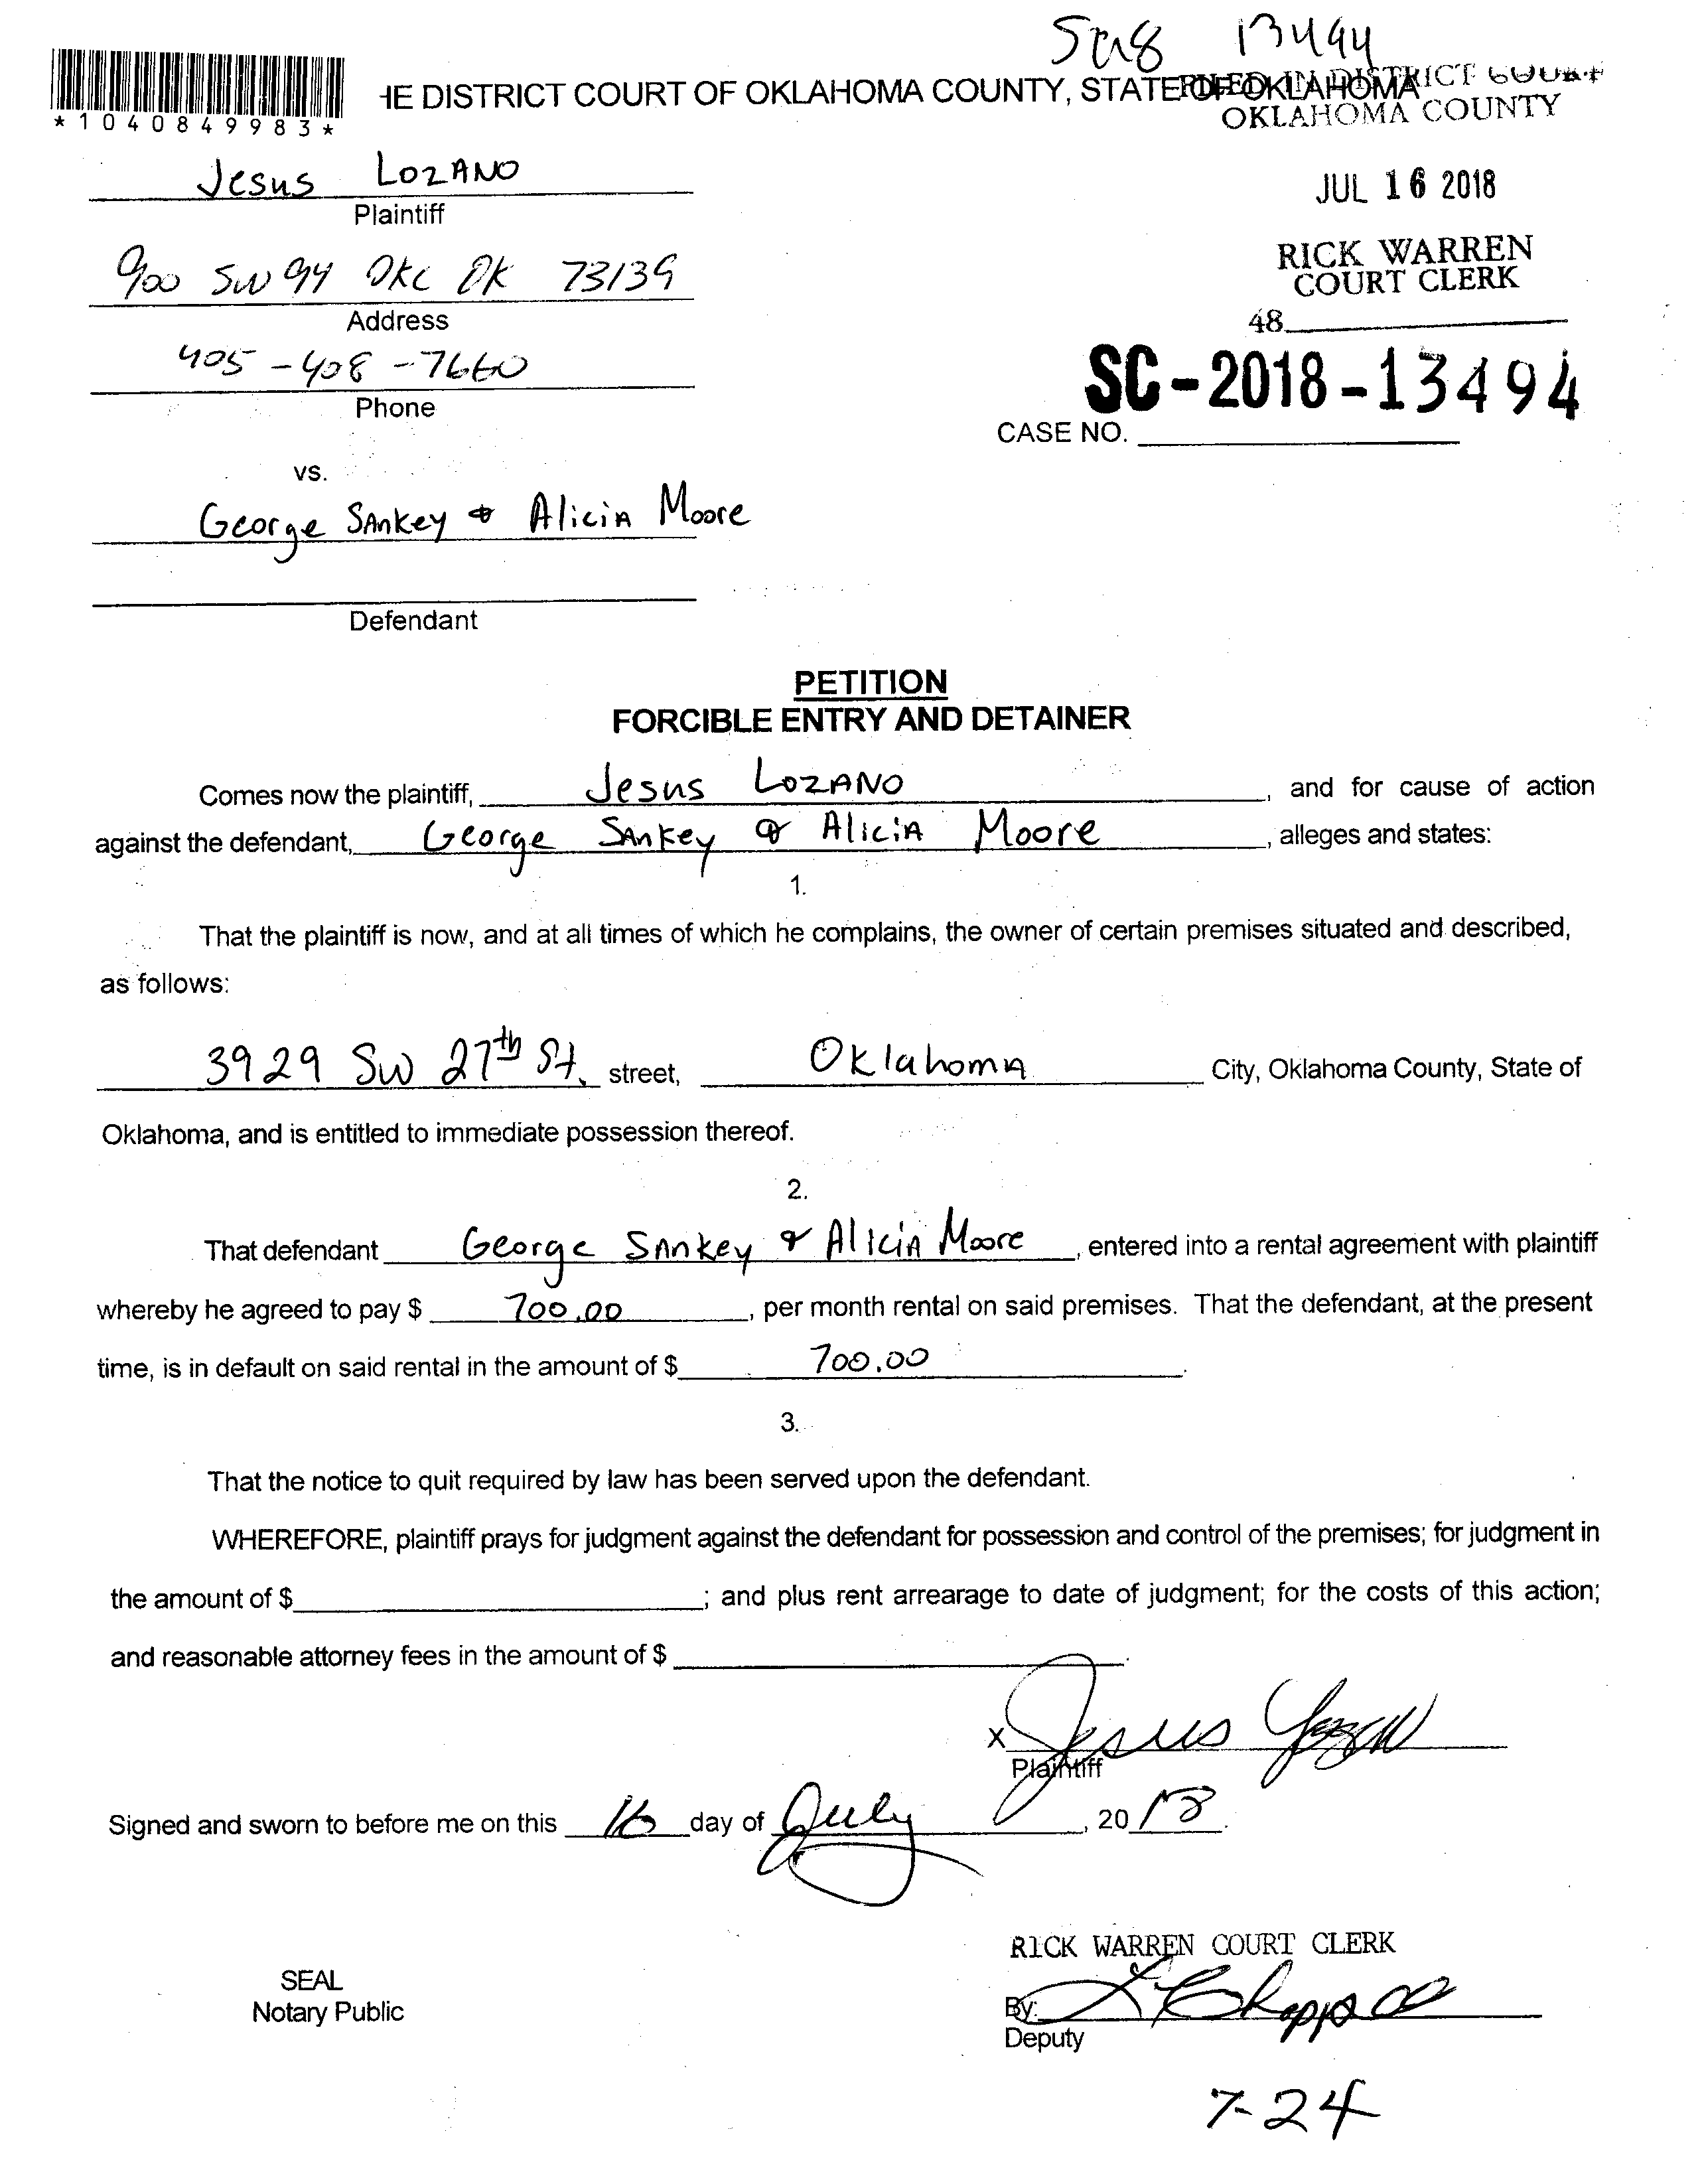 SC18 13494
*1040849983*
HE DISTRICT COURT OF OKLAHOMA COUNTY, STATE OF OKLAHOMA
FILED IN DISTRICT COURT
OKLAHOMA COUNTY
Jesus LOZANO
Plaintiff
JUL 16 2018
900 SW 94 OKC OK 73139
Address
RICK WARREN
COURT CLERK
48
405-408-7660
Phone
SC-2018-13494
CASE NO.
vs.
George Sankey & Alicia Moore
Defendant
PETITION
FORCIBLE ENTRY AND DETAINER
Comes now the plaintiff, Jesus LOZANO, and for cause of action
against the defendant, George Sankey & Alicia Moore, alleges and states:
1.
That the plaintiff is now, and at all times of which he complains, the owner of certain premises situated and described,
as follows:
3929 SW 27th St. street, Oklahoma City, Oklahoma County, State of
Oklahoma, and is entitled to immediate possession thereof.
2.
That defendant George Sankey & Alicia Moore, entered into a rental agreement with plaintiff
whereby he agreed to pay $ 700.00, per month rental on said premises. That the defendant, at the present
time, is in default on said rental in the amount of $ 700.00.
3.
That the notice to quit required by law has been served upon the defendant.
WHEREFORE, plaintiff prays for judgment against the defendant for possession and control of the premises; for judgment in
the amount of $ ; and plus rent arrearage to date of judgment; for the costs of this action;
and reasonable attorney fees in the amount of $ .
X Jesus Lozano
Plaintiff
Signed and sworn to before me on this 16 day of July, 2018.
RICK WARREN COURT CLERK
SEAL
Notary Public
By:
Deputy
7-24